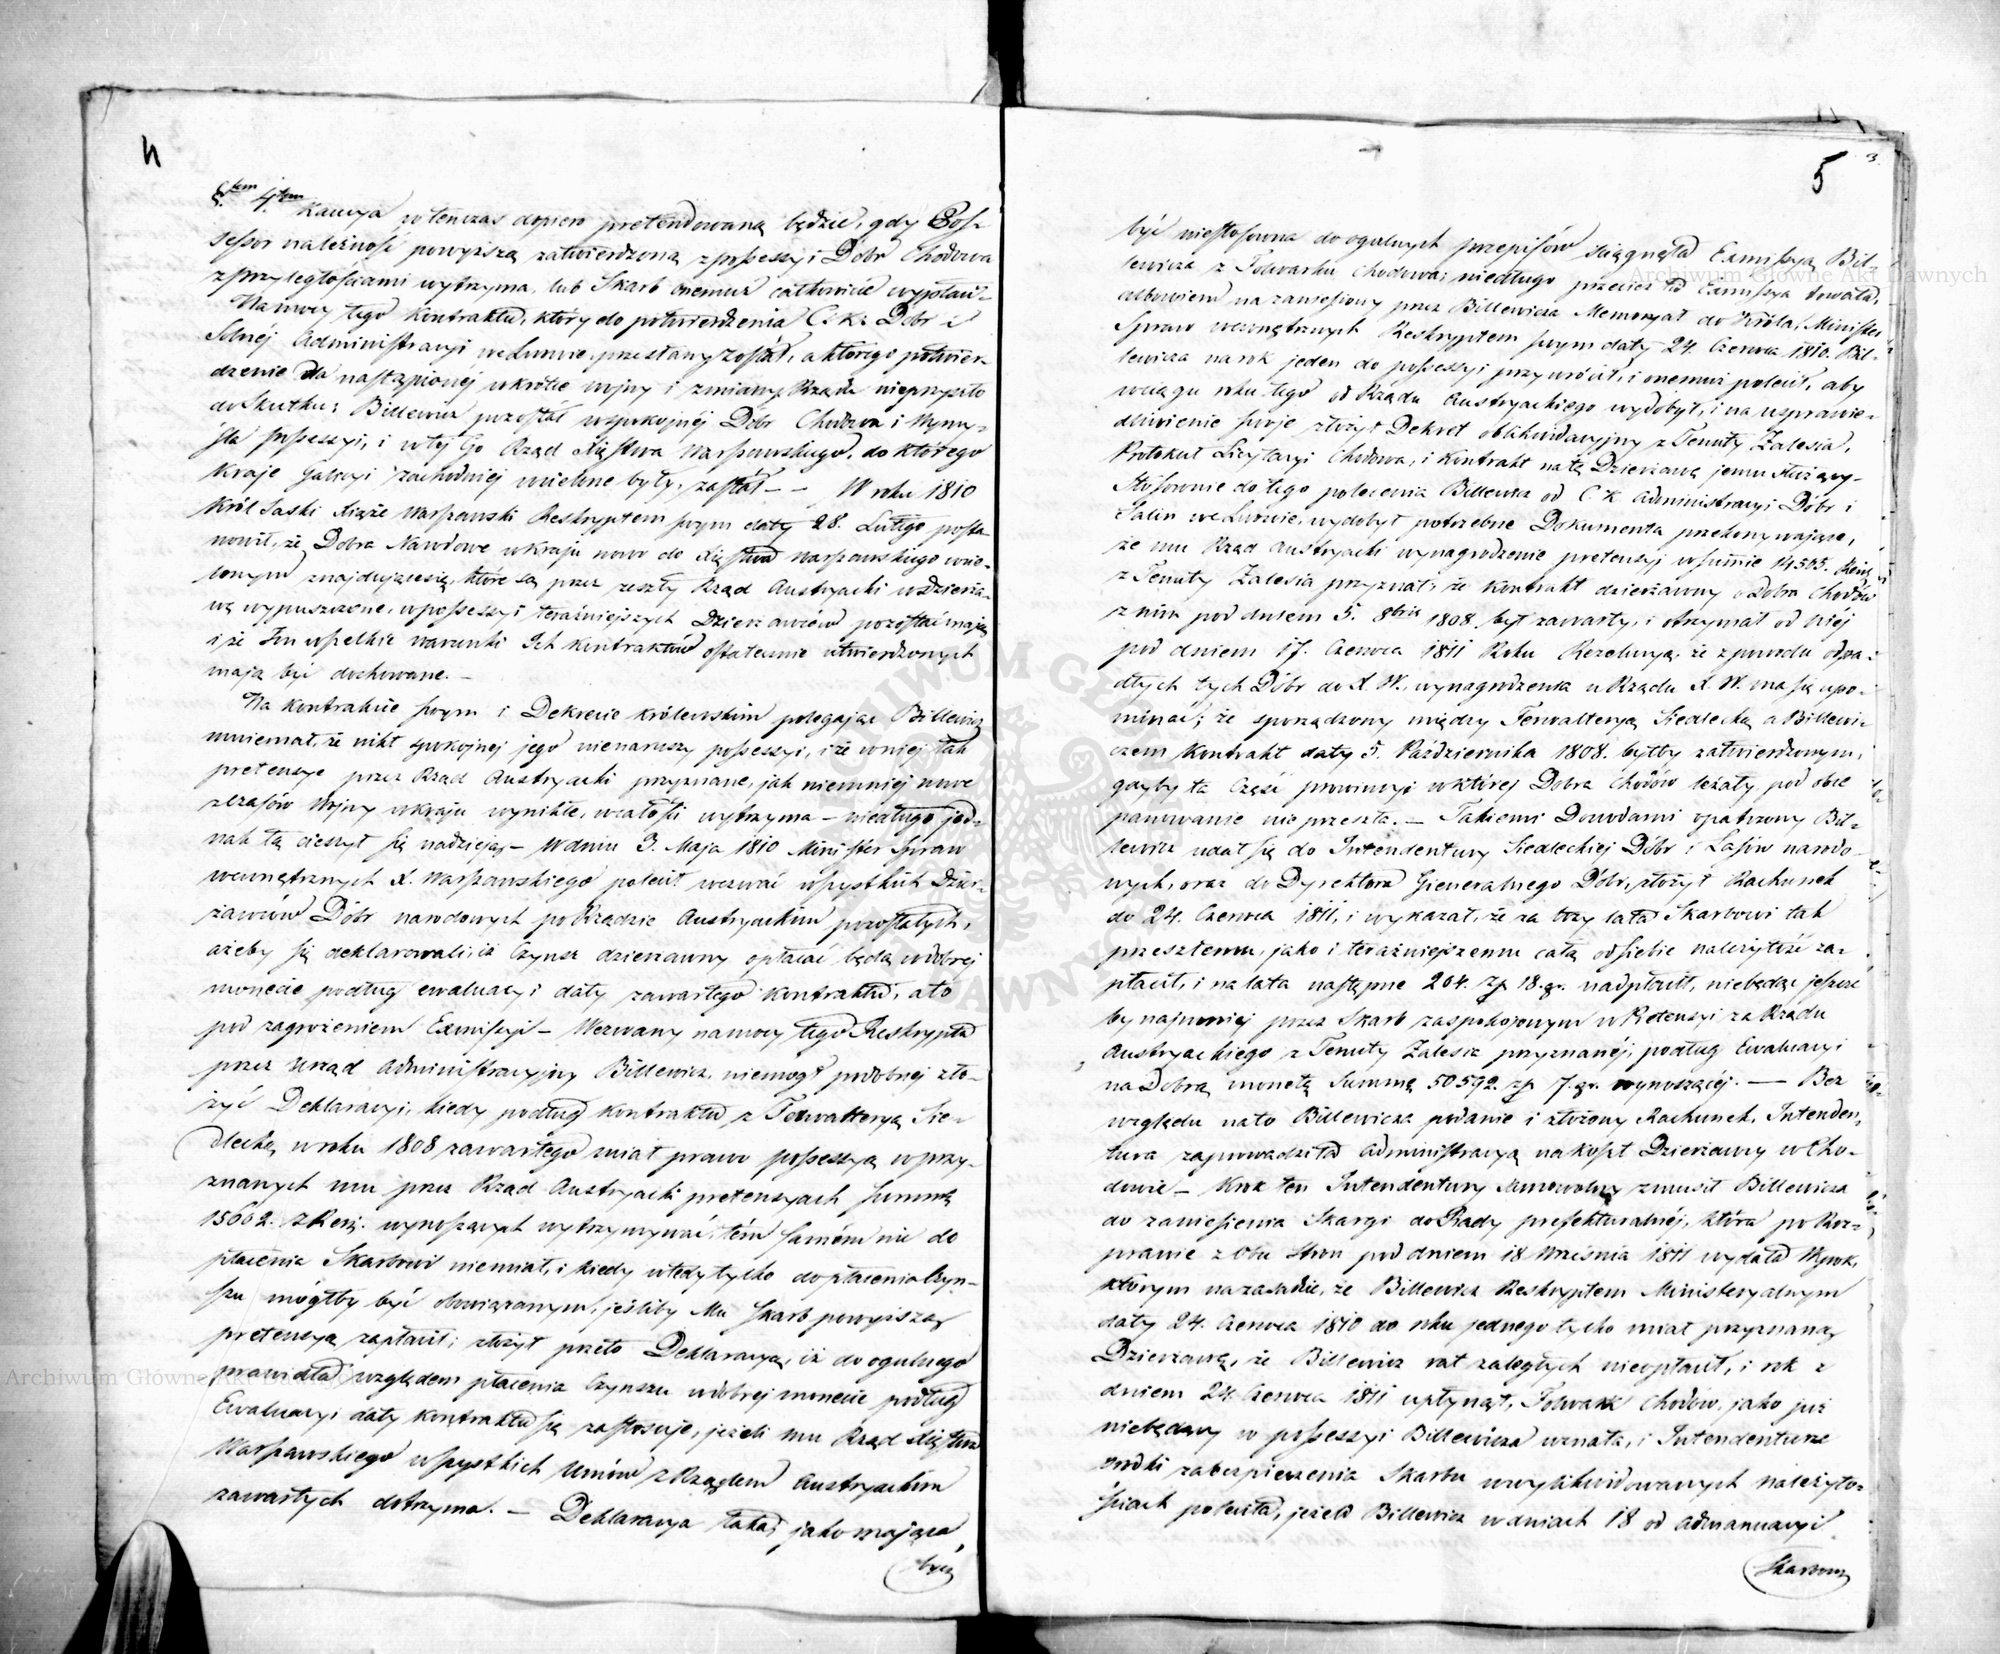 4
§.tem 4.tem Kaucya wtenczas dopiero pretendowaną będzie, gdy Pos-
sessor należność powyższą zatwierdzoną z possessyi Dóbr Chodowa
z przyległościami wytrzyma, lub Skarb onemuż całkowicie wypłaci.
Na mocy tego Kontraktu, który do potwierdzenia C. K. Dobr i
Solnéj Administracyi we Lwowie przesłany został, a którego potwier-
dzenie dla nastąpionéj wkrótce wojny i zmiany Rządu nieprzyszło
do Skutku; Billewicz pozostał w spokojnéj Dóbr Chodowa i Wymy-
sla possessyi, i w téj Go Rząd Xięstwa Warszawskiego, do którego
Kraje Galicyi zachodniéj wcielone były, zastał — — W roku 1810
Król Saski Xiąże Warszawski Reskryptem swym daty 28. Lutego posta-
nowił, że Dobra Narodowe w kraju nowo do Xięstwa Warszawskiego wcie-
lonym znajdujące się, które są przez zeszły Rząd Austryacki w dzierża-
wę wypuszczone, w possessyi teraźniejszych Dzierżawców pozostać mają
i że Im wszelkie warunki Ich Kontraktów ostatecznie utwierdzonych
mają być dochowane. —
Na kontrakcie swym i Dekrecie królewskim polegając Billewicz
mniemał, że nikt spokojnej jego nienaruszy possessyi, i że w niej tak
pretensye przez Rząd Austryacki przyznane, jak niemniej nowe
z czasów Wojny w kraju wynikłe, w całości wytrzyma — niedługo jed-
nak tą cieszył się nadzieją — W dniu 3. Maja 1810 Minister Spraw
wewnętrznych X. Warszawskiego polecił wezwać wszystkich Dzier-
żawców Dóbr narodowych po Rządzie Austryackim pozostałych,
ażeby się deklarowali, iż Czynsz dzierżawny opłacać będą w dobrej
monecie podług ewaluacyi daty zawartego Kontraktu, a to
pod zagrożeniem Exmissyi — Wezwany na mocy tego Reskryptu
przez Urząd Administracyjny Billewicz, niemogł podobnej zło-
żyć Deklaracyi, kiedy podług kontraktu z Ferwalteryą Sie-
dlecką w roku 1808 zawartego miał prawo possessyą w przy-
znanych mu przez Rząd Austryacki pretensyach summę
15602. zReń. wynoszących wytrzymywać, tém samém nic do
płacenia Skarbowi niemiał, i kiedy wtedy tylko do płacenia Czyn-
szu mógłby być obowiązanym, jeśliby Mu Skarb powyższą
pretensyą zapłacił; złożył przeto Deklaracyą, iż do ogulnego
prawidła względem płacenia Czynszu w dobrej monecie podług
Ewaluacyi daty kontraktu się zastosuje, jeżeli mu Rząd Xięstwa
Warszawskiego wszystkich Umów z Rządem Austryackim
zawartych dotrzyma. — Deklaracya taka, jako mająca
być
5
3.
być niestosowna do ogulnych przepisów ściągnęła Exmissyą Bil-
lewicza z Folwarku Chodowa; niedługo przecież ta Exmissya trwała,
albowiem na zaniesiony przez Billewicza Memoryał do Króla, Minister
Spraw wewnętrznych Reskryptem swym daty 24. Czerwca 1810. Bil-
lewicza na rok jeden do possessyi przywrócił, i onemuż polecił, aby
w ciągu roku tego od Rządu Austryackiego wydobył, i na usprawie-
dliwienie swoje złożył Dekret oblikwidacyjny z Tenuty Zalesia,
Protokuł Licytacyi Chodowa, i Kontrakt na tę Dzierżawę jemu służący —
Stósownie do tego polecenia Billewicz od C. K. Administracyi Dóbr i
Salin we Lwowie, wydobył potrzebne Dokumenta przekonywające,
że mu Rząd Austryacki wynagrodzenie pretensyi w summie 14505. Reń.
z Tenuty Zalesia przyznał; że Kontrakt dzierżawny o Dobra Chodów
z nim pod dniem 5. 8bris 1808 był zawarty, i otrzymał od niéj
pod dniem 17. Czerwca 1811 Roku Rezolucyą, że z powodu odpa-
dłych tych Dóbr do X. W., wynagrodzenia u Rządu X. W. ma się upo-
minać; że sporządzony między Ferwalteryą Siedlecką a Billewi-
czem Kontrakt daty 5. Października 1808. byłby zatwierdzonym,
gdyby ta Część prowincyi w której Dobra Chodów leżały, pod obce
panowanie nie przeszła. — Takiemi Dowodami opatrzony Bil-
lewicz udał się do Intendentury Siedleckiej Dóbr i Lasów narodo-
wych, oraz do Dyrektora Gieneralnego Dóbr, złożył Rachunek
do 24. Czerwca 1811, i wykazał, że za trzy lata Skarbowi tak
przeszłemu, jako i teraźniejszemu całą od siebie należytość za-
płacił, i na lata następne 204. zp 18. gr. nadpłacił, niebędąc jeszcze
bynajmniej przez Skarb zaspokojonym w Pretensyi za Rządu
Austryackiego z Tenuty Zalesia przyznanéj, podług Ewaluacyi
na Dobrą monetę Summę 50592. zp 7. gr. wynoszącéj. — Bez
względu na to Billewicza podanie i złożony Rachunek, Intenden-
tura zaprowadziła Administracyą na koszt Dzierżawcy w Cho-
dowie — Krok ten Intendentury samowolny zmusił Billewicza
do zaniesienia Skargi do Rady prefekturalnéj, która po Roz-
prawie z Obu Stron pod dniem 18 Września 1811 wydała Wyrok,
którym na zasadzie, że Billewicz Reskryptem Ministeryalnym
daty 24. Czerwca 1810 do roku jednego tylko miał przyznaną
Dzierżawę, że Billewicz rat zaległych nieopłacił, i rok z
dniem 24. Czerwca 1811 upłynął, Folwark Chodów, jako już
niebędący w possessyi Billewicza uznała, i Intendenturze
środki zabezpieczenia Skarbu w wylikwidowanych należyto-
ściach poleciła, jeżeli Billewicz w dniach 18 od
Skarbową
Archiwum Główne Akt Dawnych
Archiwum Główne Akt Dawnych
ARCHIWUM GŁÓWNE AKT DAWNYCH